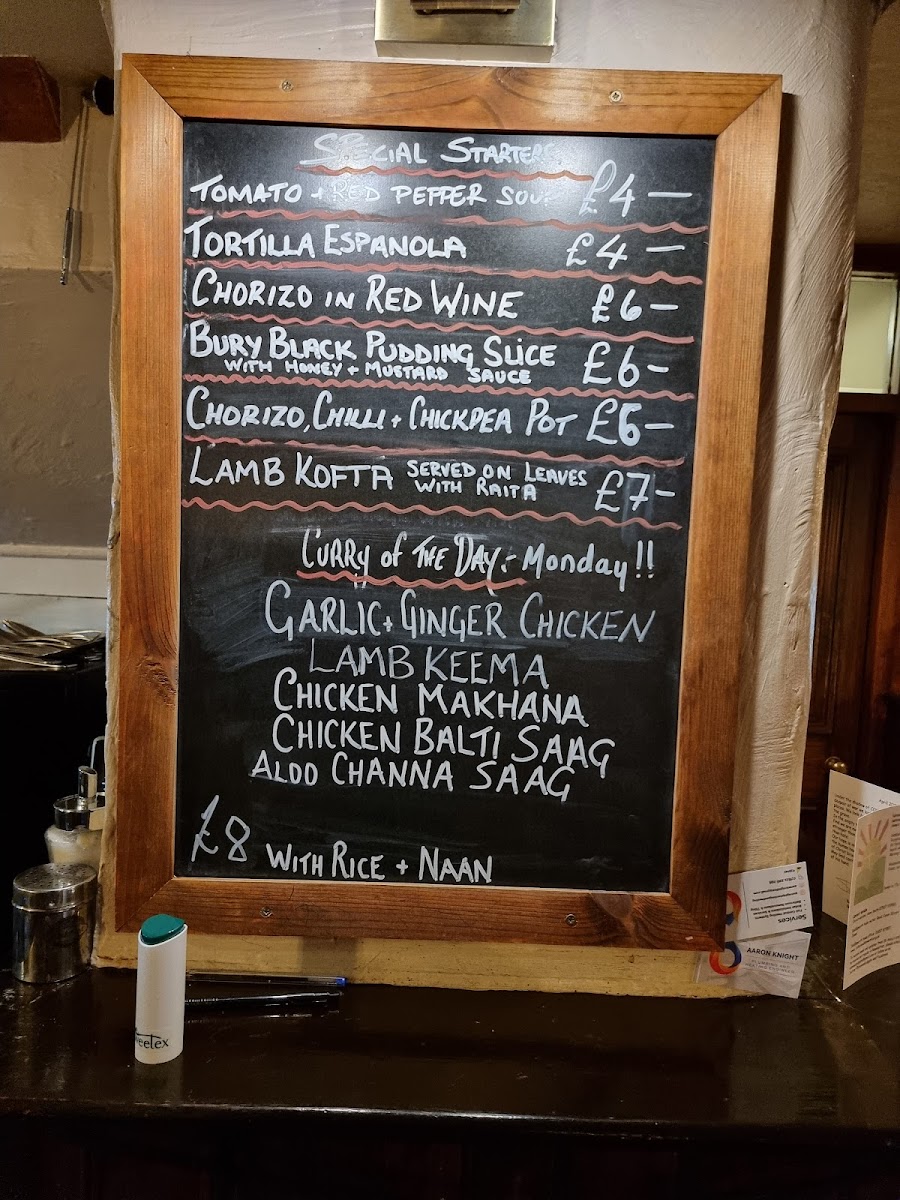 SPECIAL STARTERS
TOMATO + RED PEPPER SOUP £4 —
TORTILLA ESPANOLA £4 —
CHORIZO IN RED WINE £6 —
BURY BLACK PUDDING SLICE £6 —
WITH HONEY + MUSTARD SAUCE
CHORIZO, CHILLI + CHICKPEA POT £6 —
LAMB KOFTA SERVED ON LEAVES £7 —
WITH RAITA
CURRY OF THE DAY :- Monday !!
GARLIC + GINGER CHICKEN
LAMB KEEMA
CHICKEN MAKHANA
CHICKEN BALTI SAAG
ALOO CHANNA SAAG
£8 WITH RICE + NAAN
Services
AARON KNIGHT
eetex